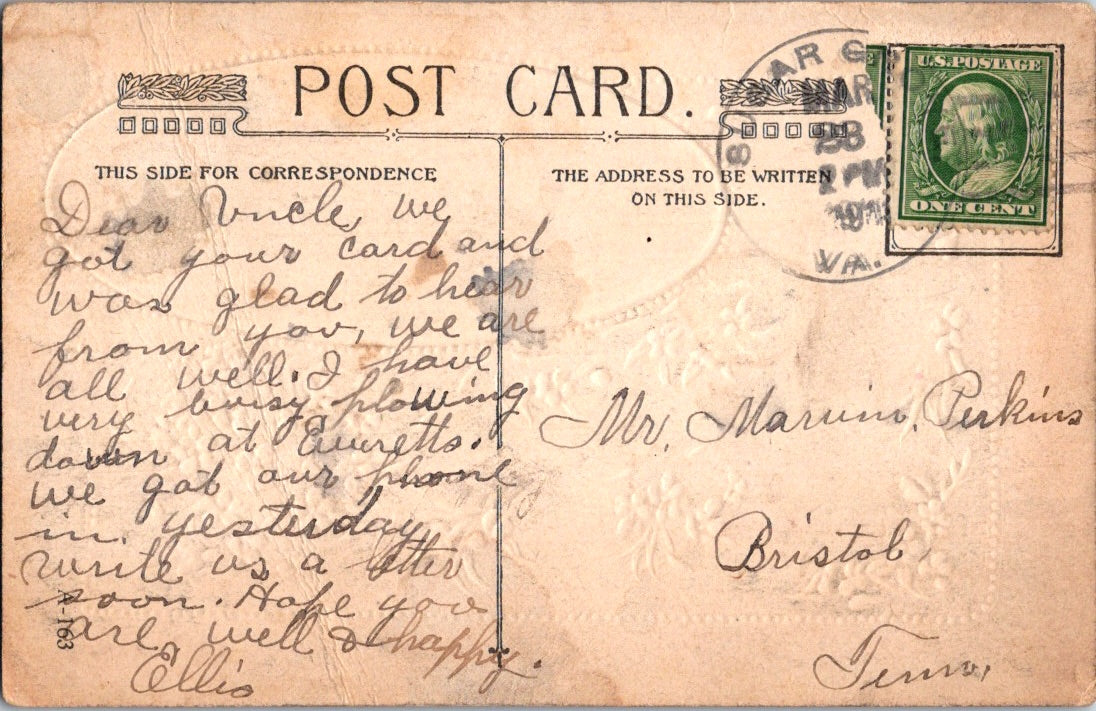 POST CARD.
THIS SIDE FOR CORRESPONDENCE
THE ADDRESS TO BE WRITTEN
ON THIS SIDE.
AR
MAR
28
PM
VA.
U.S. POSTAGE
ONE CENT
Dear Uncle, we
got your card and
was glad to hear
from you, we are
all well. I have
very busy plowing
down at Everetts.
we got our phone
in yesterday
write us a letter
soon. Hope you
are well & happy.
Ellis
A-163
Mr. Marvin Perkins
Bristol
Tenn.